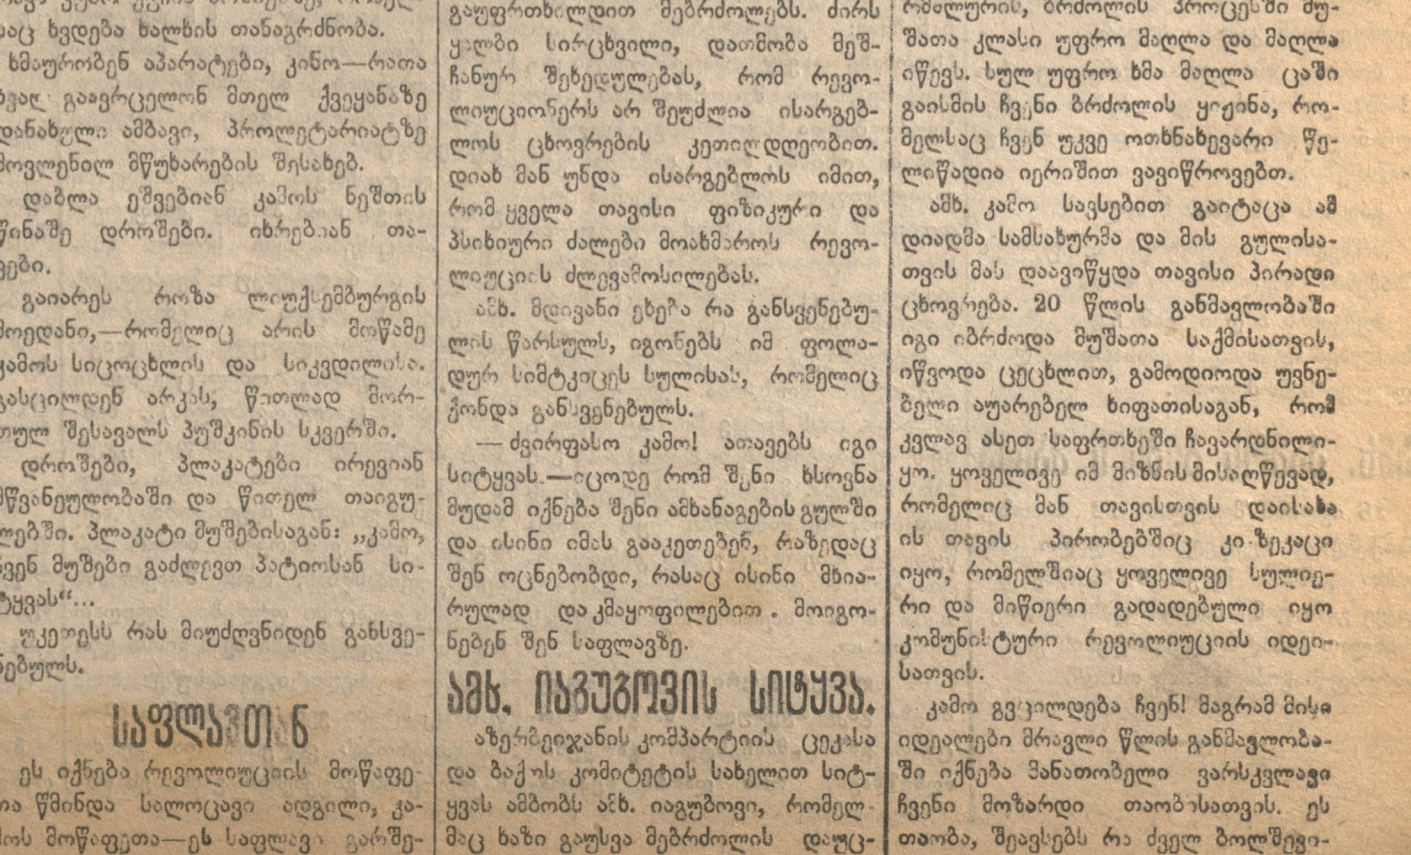 საც ხვდება ხალხის თანაგრძნობა.
ხმაურობენ აპარატები, კინო—რათა
გაავრცელონ მთელ ქვეყანაზე
დანახული ამბავი, პროლეტარიატზე
მოვლენილ მწუხარების შესახებ.
დაბლა ეშვებიან კამოს ნეშთის
წინაშე დროშები. იხრებიან თა-
ვები.
გაიარეს როზა ლიუქსემბურგის
მოედანი,—რომელიც არის მოწამე
კამოს სიცოცხლის და სიკვდილისა.
გასცილდენ არკას, წითლად მორ-
თულ შესავალს პუშკინის სკვერში.
დროშები, პლაკატები ირევიან
მწვანეულობაში და წითელ თაიგუ-
ლებში. პლაკატი მუშებისაგან: „კამო,
ჩვენ მუშები გაძლევთ პატიოსან სი-
ტყვას“...
უკეთესს რას მიუძღვნიდენ განსვე-
ნებულს.
საფლავთან
ეს იქნება რევოლიუციის მოწაფე-
თა წმინდა სალოცავი ადგილი, კა-
მოს მოწაფეთა—ეს საფლავი გარშე-
გაუფრთხილდით მებრძოლებს. ძირს
ყალბი სირცხვილი, დათმობა მეშ-
ჩანურ შეხედულებას, რომ რევო-
ლიუციონერს არ შეუძლია ისარგებ-
ლოს ცხოვრების კეთილდღეობით.
დიახ მან უნდა ისარგებლოს იმით,
რომ ყველა თავისი ფიზიკური და
პსიხიური ძალები მოახმაროს რევო-
ლიუციის ძლევამოსილებას.
ამხ. მდივანი ეხება რა განსვენებუ-
ლის წარსულს, იგონებს იმ ფოლა-
დურ სიმტკიცეს სულისას, რომელიც
ქონდა განსვენებულს.
— ძვირფასო კამო! ათავებს იგი
სიტყვას.—იცოდე რომ შენი ხსოვნა
მუდამ იქნება შენი ამხანაგების გულში
და ისინი იმას გააკეთებენ, რაზედაც
შენ ოცნებობდი, რასაც ისინი მხია-
რულად და კმაყოფილებით . მოიგო-
ნებენ შენ საფლავზე.
ამხ. იაგუბოვის სიტყვა.
აზერბეიჯანის კომპარტიის ცეკასა
და ბაქოს კომიტეტის სახელით სიტ-
ყვას ამბობს ამხ. იაგუბოვი, რომელ-
მაც ხაზი გაუსვა მებრძოლის დაუც-
ბრძოლის პროცესში მუ-
შათა კლასი უფრო მაღლა და მაღლა
იწევს. სულ უფრო ხმა მაღლა ცაში
გაისმის ჩვენი ბრძოლის ყიჟინა, რო-
მელსაც ჩვენ უკვე ოთხნახევარი წე-
ლიწადია იერიშით ვავიწროვებთ.
ამხ. კამო სავსებით გაიტაცა ამ
დიადმა სამსახურმა და მის გულისა-
თვის მას დაავიწყდა თავისი პირადი
ცხოვრება. 20 წლის განმავლობაში
იგი იბრძოდა მუშათა საქმისათვის,
იწვოდა ცეცხლით, გამოდიოდა უვნე-
ბელი აუარებელ ხიფათისაგან, რომ
კვლავ ასეთ საფრთხეში ჩავარდნილი-
ყო. ყოველივე იმ მიზნის მისაღწევად,
რომელიც მან თავისთვის დაისახა
ის თავის პირობებშიც კი ზეკაცი
იყო, რომელშიაც ყოველივე სულიე-
რი და მიწიერი გადადებული იყო
კომუნისტური რევოლიუციის იდეი-
სათვის.
კამო გვცილდება ჩვენ! მაგრამ მისი
იდეალები მრავლი წლის განმავლობა-
ში იქნება მანათობელი ვარსკვლავი
ჩვენი მოზარდი თაობისათვის. ეს
თაობა, შეავსებს რა ძველ ბოლშევი-